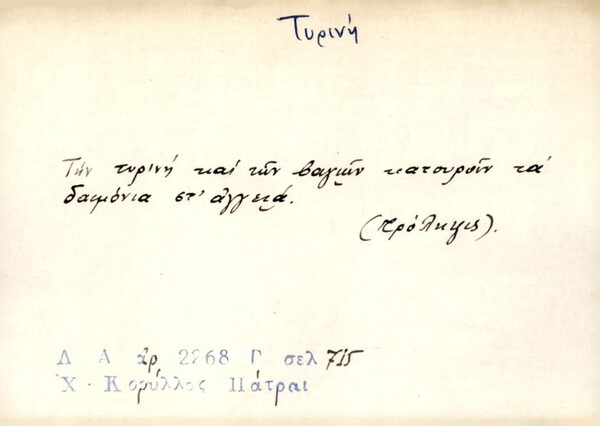 Τυρινή
Τήν τυρινή καί τῶν βαγιῶν κατουροῦν τά
δαιμόνια στ' ἀγγειά.
(πρόληψις).
Λ Α ἀρ 2268 Γ σελ 715
Χ. Κορύλλος Πάτραι